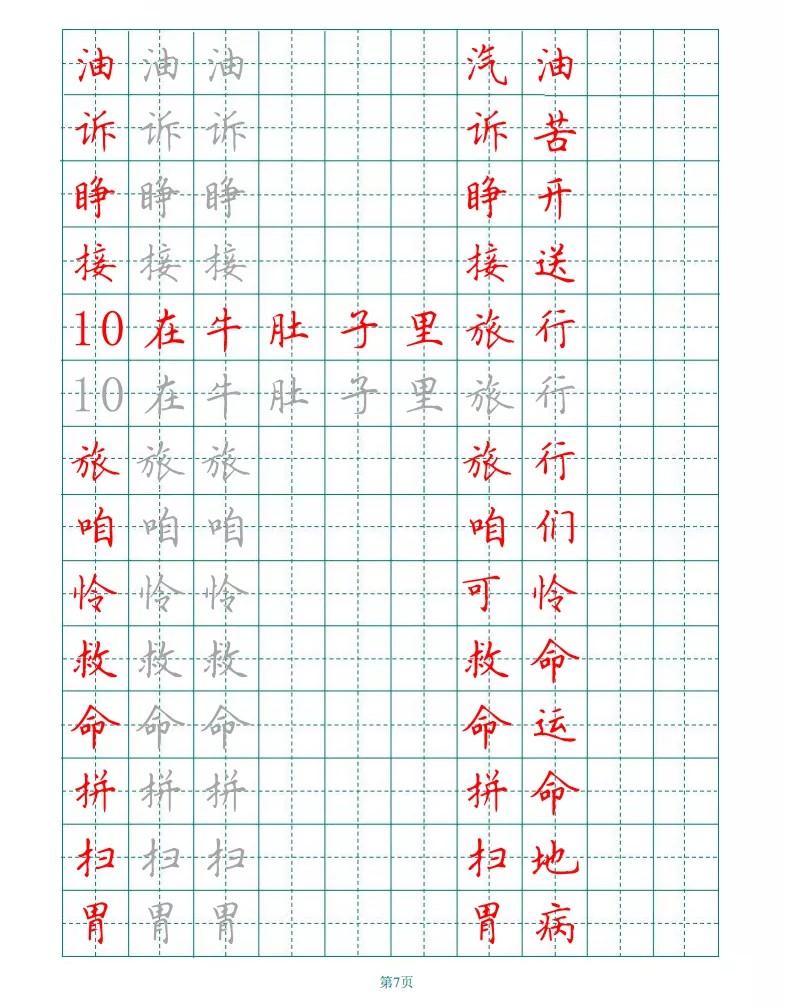 油 油 油 汽 油
诉 诉 诉 诉 苦
睁 睁 睁 睁 开
接 接 接 接 送
10 在 牛 肚 子 里 旅 行
10 在 牛 肚 子 里 旅 行
旅 旅 旅 旅 行
咱 咱 咱 咱 们
怜 怜 怜 可 怜
救 救 救 救 命
命 命 命 命 运
拼 拼 拼 拼 命
扫 扫 扫 扫 地
胃 胃 胃 胃 病
第7页